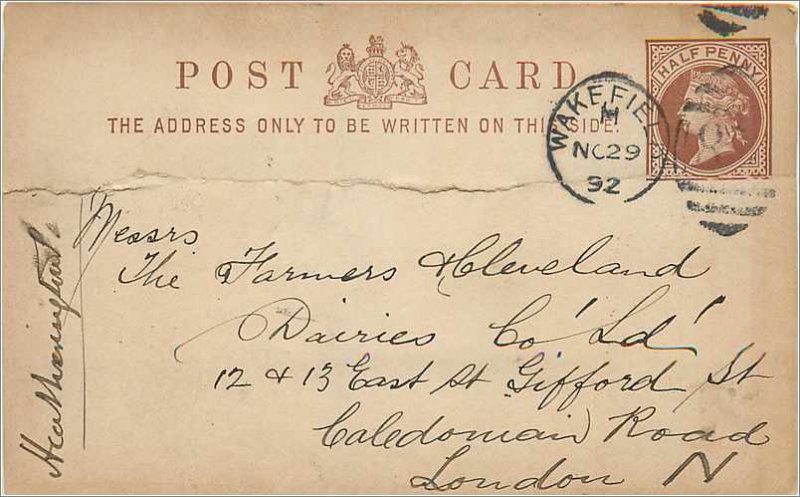 POST CARD
THE ADDRESS ONLY TO BE WRITTEN ON THIS SIDE.
HALF PENNY
WAKEFIEL
M
NO29
92
Messrs
The Farmers & Cleveland
Dairies Co' Ld'
12 & 13 East St Gifford St
Caledonian Road
London N